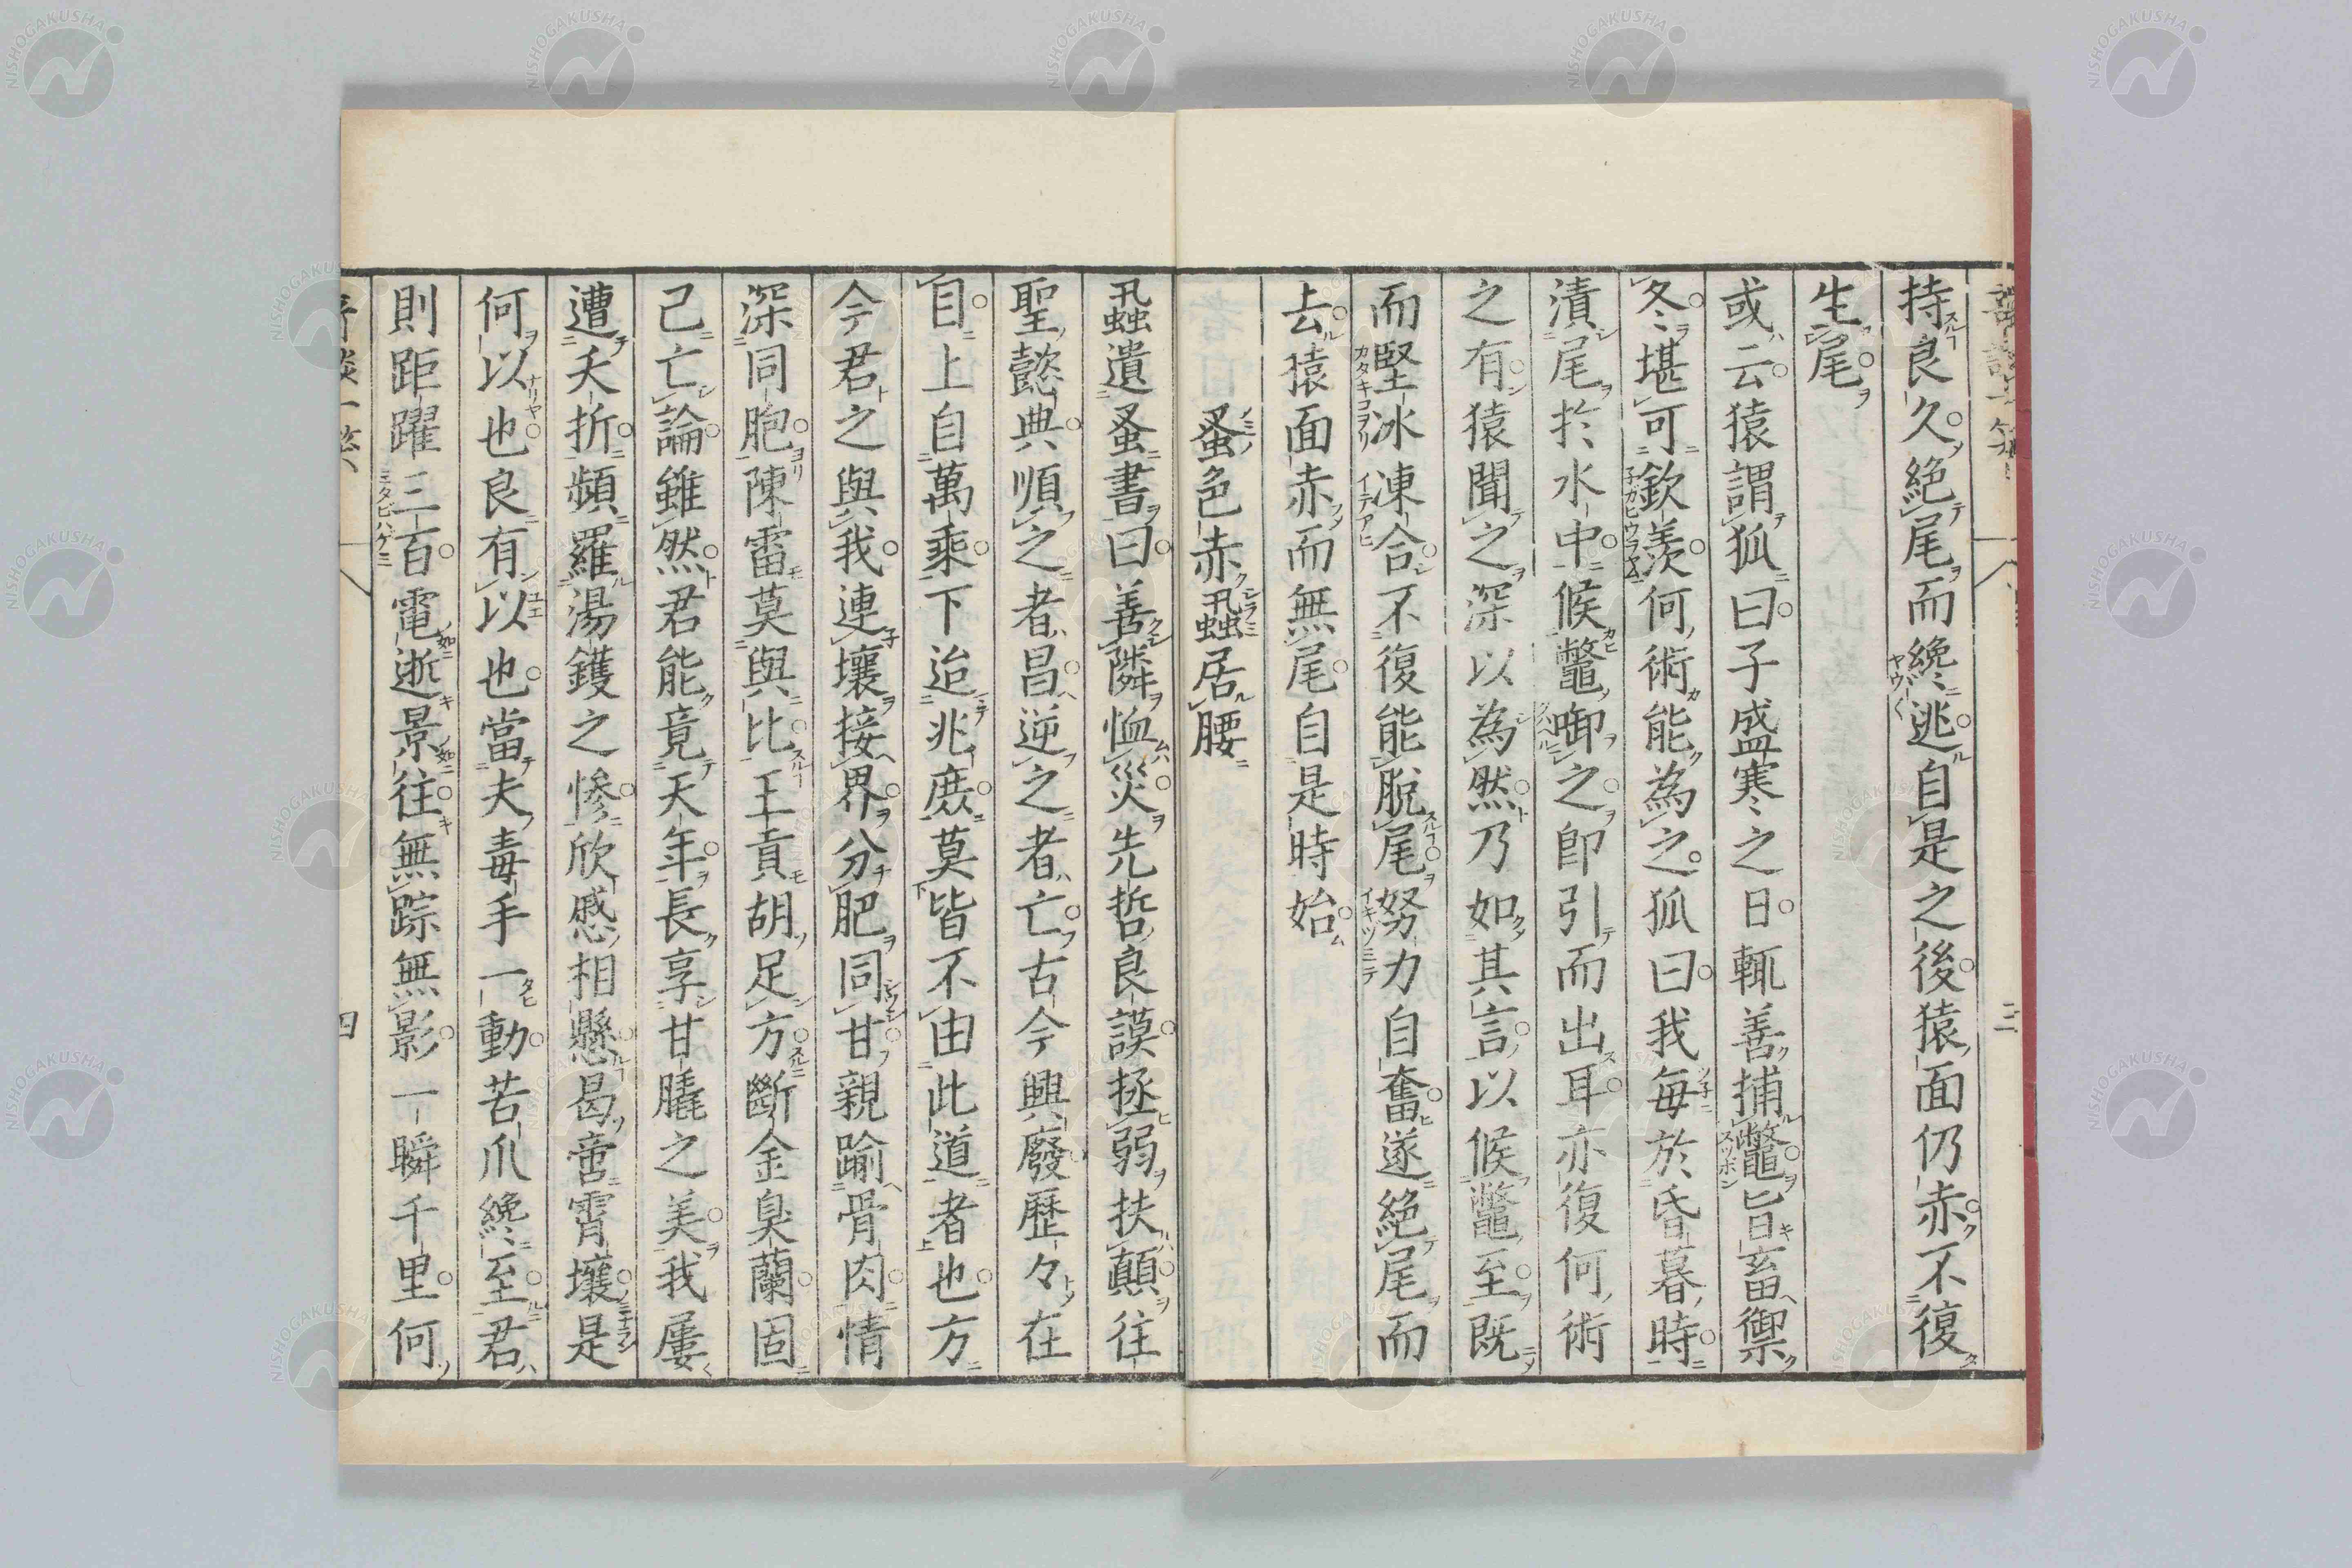 持良久絶尾而纔逃自是之後猿面仍赤不復
生尾
或云猿謂狐曰子盛寒之日輒善捕鼈旨畜禦
冬堪可欽羨何術能為之狐曰我每於昏暮時
漬尾於水中候鼈啣之即引而出耳亦復何術
之有猿聞之深以為然乃如其言以候鼈至既
而堅冰凍合不復能脫尾努力自奮遂絶尾而
去猿面赤而無尾自是時始
蚤色赤虱居腰
虱遺蚤書曰善隣恤災先哲良謨拯弱扶顛往
聖懿典順之者昌逆之者亡古今興廢歷々在
目上自萬乘下迨兆庶莫皆不由此道者也方
今君之與我連壤接界分肥同甘親踰骨肉情
深同胞陳雷莫與比王貢胡足方斷金臭蘭固
己亡論雖然君能竟天年長享甘膬之美我屢
遭夭折頻羅湯鑊之慘欣慼相懸曷啻霄壤是
何以也良有以也當夫毒手一動苦爪纔至君
則距躍三百電逝景往無踪無影一瞬千里何
三
四
NISHOGAKUSHA